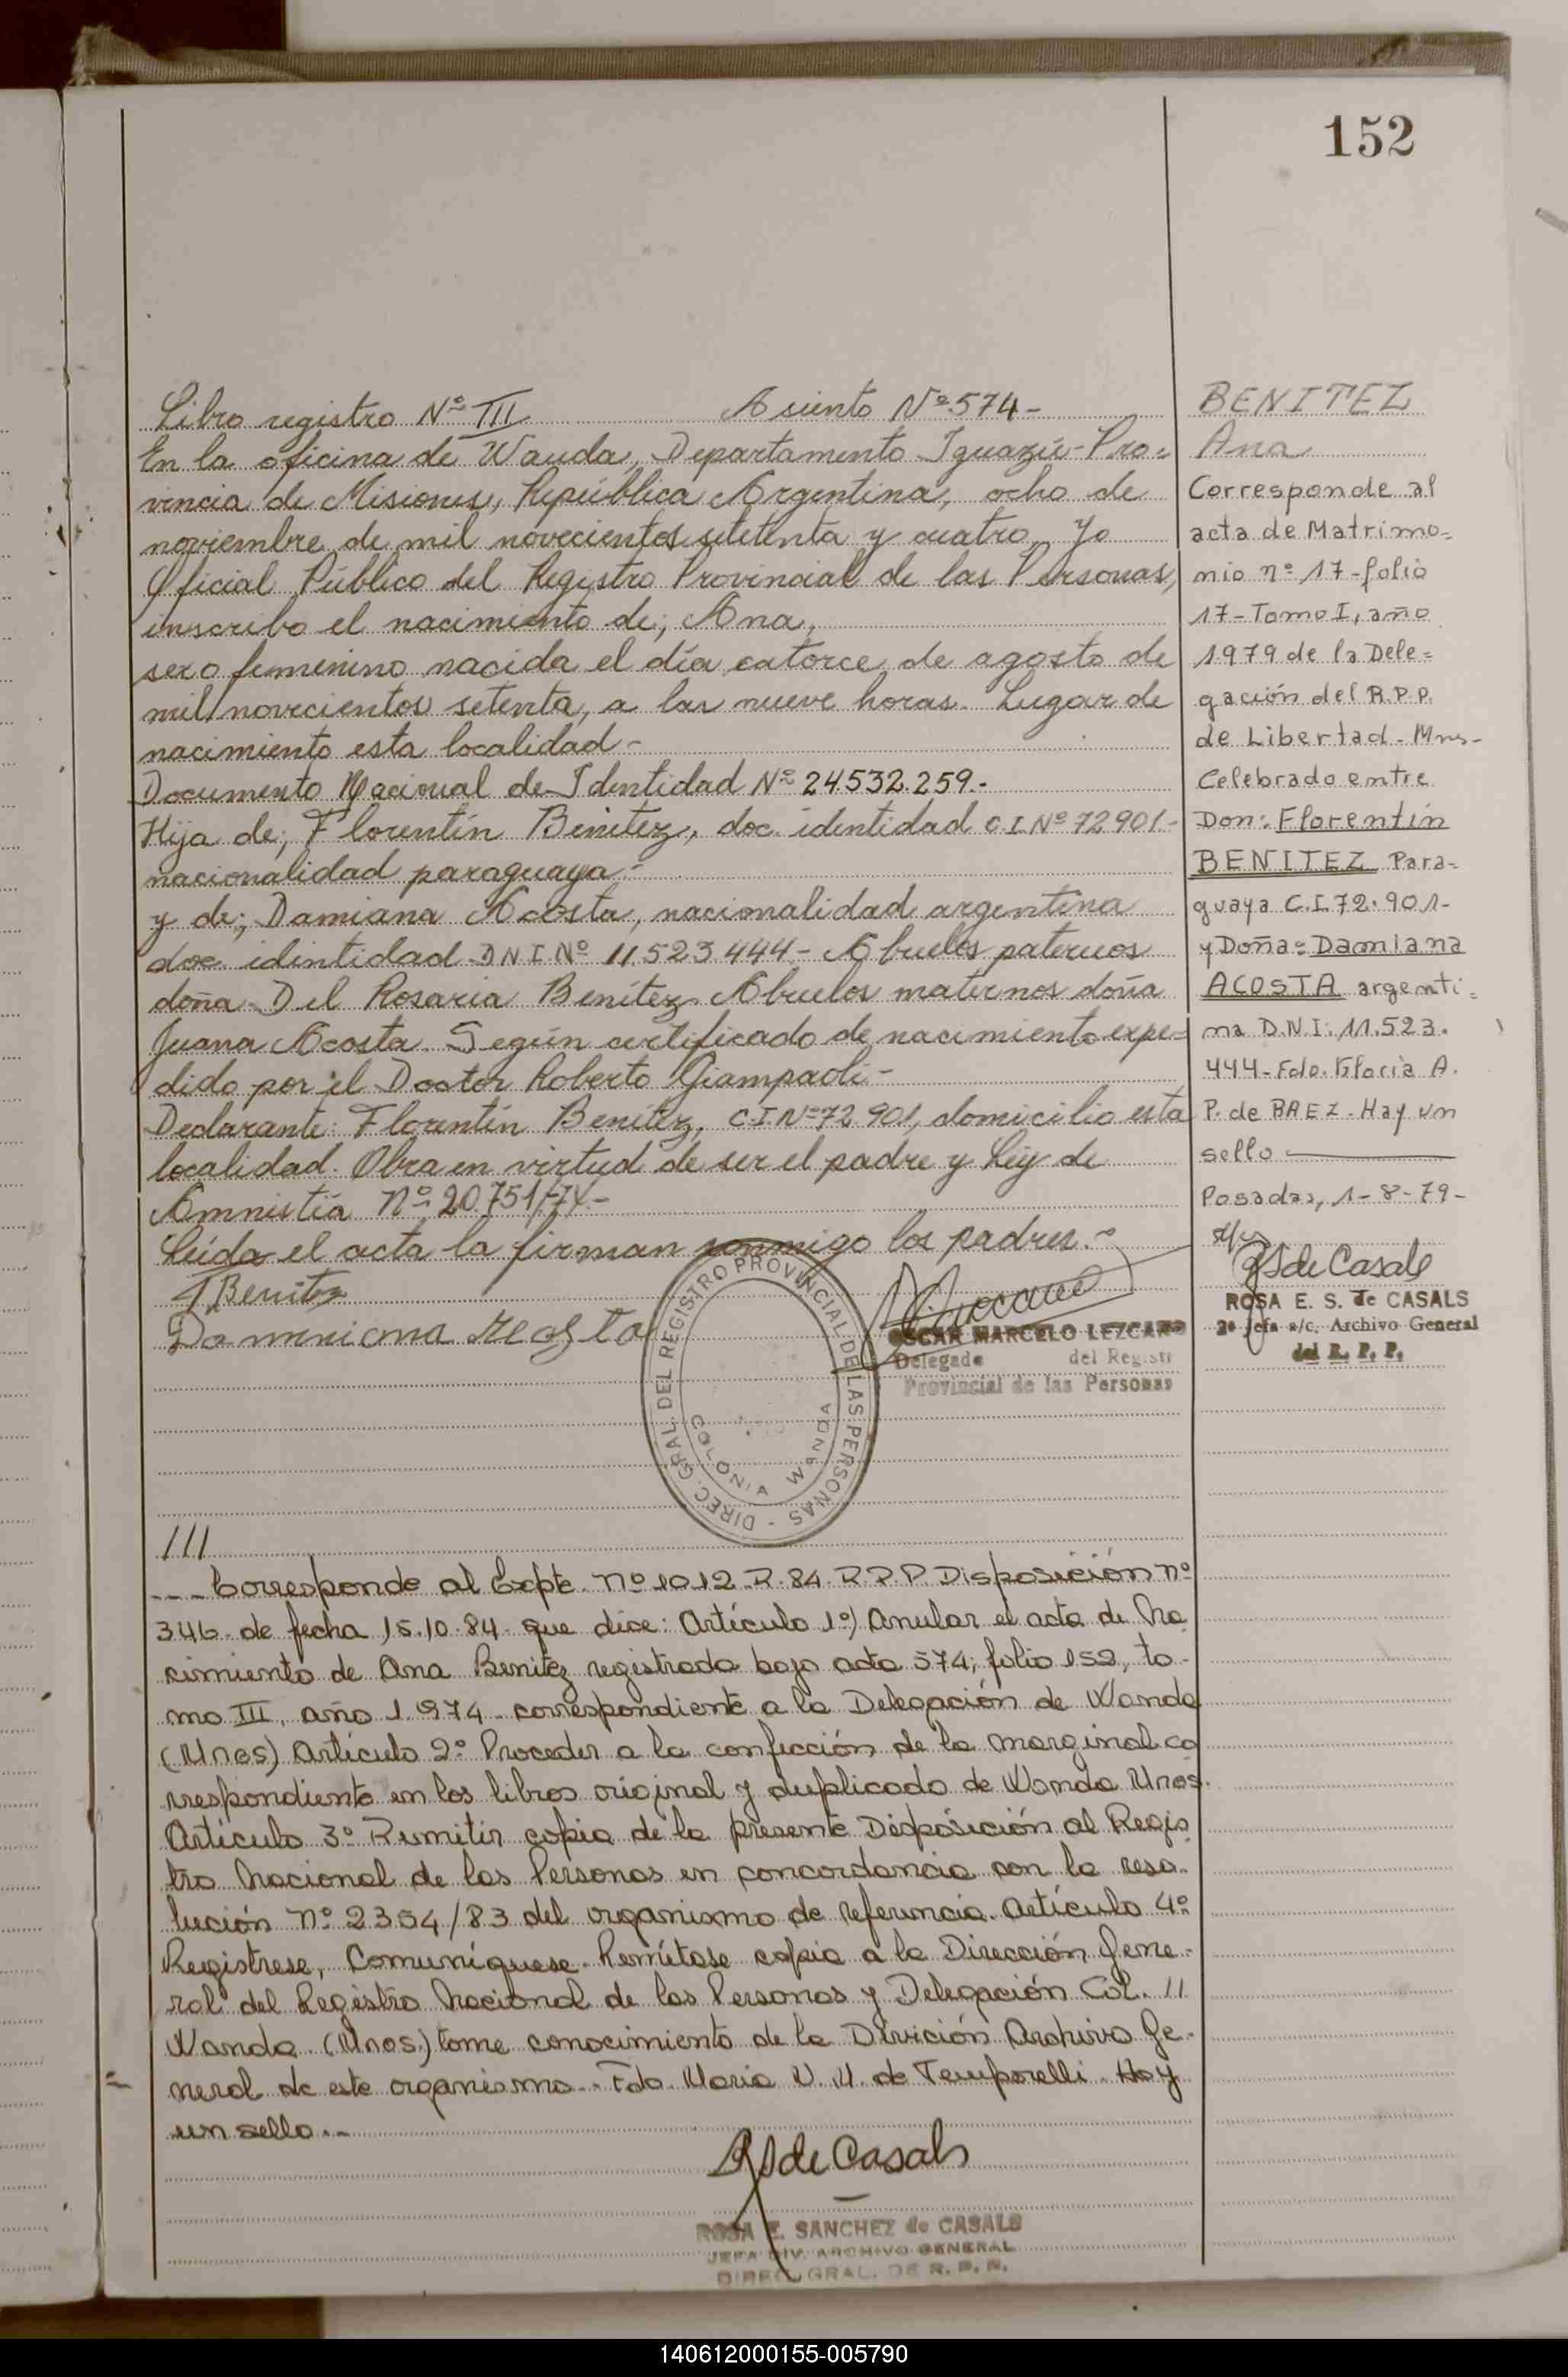 152
Libro registro Nº III Asiento Nº 574-
En la oficina de Wanda, Departamento Iguazú-Pro=
vincia de Misiones, República Argentina, ocho de
noviembre de mil novecientos setetenta y cuatro, Yo
Oficial Público del Registro Provincial de las Personas,
inscribo el nacimiento de; Ana,
sexo femenino nacida el día catorce de agosto de
mil novecientos setenta, a las nueve horas. Lugar de
nacimiento esta localidad-
Documento Nacional de Identidad Nº 24.532.259.-
Hija de; Florentín Benítez, doc. identidad C.I. Nº 72901-
nacionalidad paraguaya-
y de; Damiana Acosta, nacionalidad argentina
doc. identidad D.N.I. Nº 11.523.444.- Abuelos paternos
doña Del Rosaria Benítez. Abuelos maternos doña
Juana Acosta. Según certificado de nacimiento expe=
dido por el Doctor Roberto Giampaoli-
Declarante: Florentín Benítez, C.I. Nº 72.901, domicilio esta
localidad. Obra en virtud de ser el padre y Ley de
Amnistía Nº 20.751/74.-
Leída el acta la firman conmigo los padres.-
F Benitez
Damniana Acosta
DIREC. GRAL. DEL REGISTRO PROVINCIAL DE LAS PERSONAS -
COLONIA WANDA
OSCAR MARCELO LEZCANO
Delegado del Registr
Provincial de las Personas
BENITEZ
Ana
Corresponde al
acta de Matrimo=
nio nº 17-folio
17-Tomo I, año
1979 de la Dele=
gación del R.P.P.
de Libertad-Mns-
Celebrado entre
Don: Florentin
BENITEZ Para-
guaya C.I. 72.901-
y Doña: Damiana
ACOSTA argenti=
na D.N.I: 11.523.
444-Fdo. Gloria A.
P. de BAEZ. Hay un
sello
Posadas, 1-8-79-
RSdeCasals
ROSA E. S. de CASALS
2º Jefa a/c. Archivo General
del R. P. P.
///
--- Corresponde al Expte. Nº 1012-R-84. R.P.P. Disposición nº
346- de fecha 15.10.84- que dice: Artículo 1º) Anular el acta de Na
cimiento de Ana Benitez registrada bajo acta 574, folio 152, to-
mo III, año 1.974- correspondiente a la Delegación de Wanda
(Mnes) Artículo 2º Proceder a la confección de la marginal co
rrespondiente en los libros original y duplicado de Wanda Mnes.
Artículo 3º Remitir copia de la presente Disposición al Regis
tro Nacional de las Personas en concordancia con la reso-
lución nº 2354/83 del organismo de referencia. Artículo 4º
Registrese, Comuníquese. Remítase copia a la Dirección Gene-
ral del Registro Nacional de las Personas y Delegación Col. //
Wanda. (Mnes.) tome conocimiento de la División Archivo Ge-
neral de este organismo.- Fdo. Maria V. M. de Temporelli. Hay
un sello.-
RSdeCasals
ROSA E. SANCHEZ de CASALS
JEFA DIV. ARCHIVO GENERAL
DIREC. GRAL. DE R. P. P.
140612000155-005790